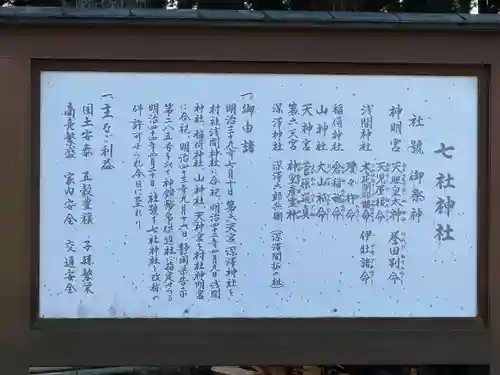 七社神社
社號 御祭神
神明宮 天照皇大神 誉田別命
天児屋根命
浅間神社 木花開耶姫命 伊弉諾命
瀞々杵命
稲荷神社 倉稲魂命
山神社 大山祇命
天神宮 菅原道真
第六天宮 神皇産霊神
深澤神社 深澤三郎兵衛(深澤開拓の祖)
一、御由諸
明治三十九年六月十日 第六天宮 深澤神社を
村社浅間神社に合祀 明治四十三年四月九日浅間
神社 稲荷神社 山神社 天神宮を村社神明宮
に合祀 明治四十三年九月十六日 静岡県告示
第二八五号をもて神饌幣帛供進社に指定せらる
明治四十四年四月二十日 社號を七社神社と改称の
件許可せられ今日に至れり
一、主なご利益
国土安泰 五穀豊穣 子孫繁栄
商売繁盛 家内安全 交通安全